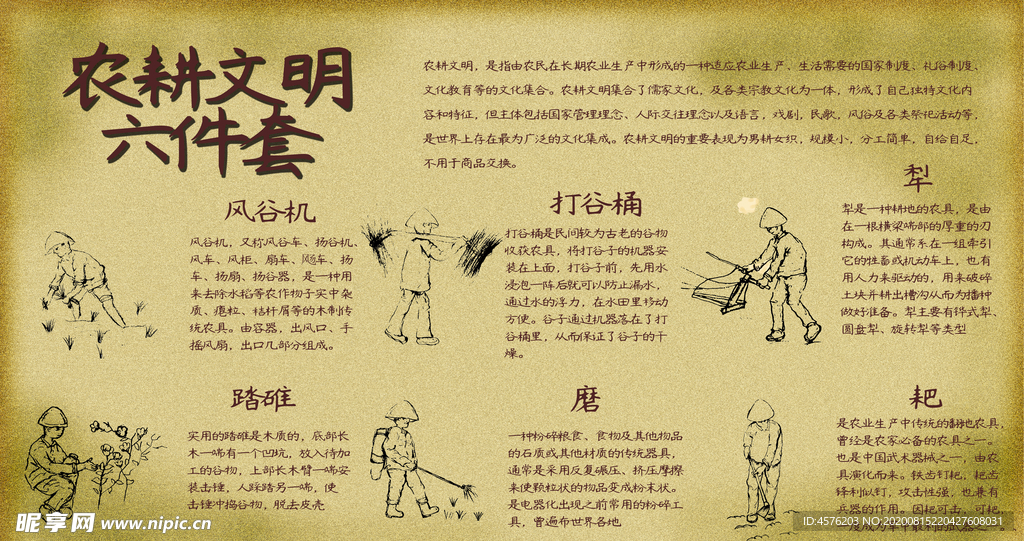 农耕文明
六件套
农耕文明，是指由农民在长期农业生产中形成的一种适应农业生产、生活需要的国家制度、礼俗制度、
文化教育等的文化集合。农耕文明集合了儒家文化，及各类宗教文化为一体，形成了自己独特文化内
容和特征，但主体包括国家管理理念、人际交往理念以及语言，戏剧，民歌，风俗及各类祭祀活动等，
是世界上存在最为广泛的文化集成。农耕文明的重要表现为男耕女织，规模小，分工简单，自给自足，
不用于商品交换。
风谷机
风谷机，又称风谷车、扬谷机、
风车、风柜、扇车、飏车、扬
车、扬扇、扬谷器，是一种用
来去除水稻等农作物子实中杂
质、瘪粒、秸杆屑等的木制传
统农具。由容器，出风口、手
摇风扇，出口几部分组成。
打谷桶
打谷桶是民间较为古老的谷物
收获农具，将打谷子的机器安
装在上面，打谷子前，先用水
浸泡一阵后就可以防止漏水，
通过水的浮力，在水田里移动
方便。谷子通过机器落在了打
谷桶里，从而保证了谷子的干
燥。
犁
犁是一种耕地的农具，是由
在一根横梁端部的厚重的刃
构成。其通常系在一组牵引
它的牲畜或机动车上，也有
用人力来驱动的，用来破碎
土块并耕出槽沟从而为播种
做好准备。犁主要有铧式犁、
圆盘犁、旋转犁等类型
踏碓
实用的踏碓是木质的，底部长
木一端有一个凹坑，放入待加
工的谷物，上部长木臂一端安
装击锤，人踩踏另一端，使
击锤中捣谷物，脱去皮壳
磨
一种粉碎粮食、食物及其他物品
的石质或其他材质的传统器具，
通常是采用反复碾压、挤压摩擦
来使颗粒状的物品变成粉末状。
是电器化出现之前常用的粉碎工
具，曾遍布世界各地
耙
是农业生产中传统的翻地农具，
曾经是农家必备的农具之一。
也是中国武术器械之一，由农
具演化而来。铁齿钉耙，耙齿
锋利似钉，攻击性强，也兼有
兵器的作用。因耙可击，可耙，
昵享网 www.nipic.cn
ID:4576203 NO:20200815220427608031